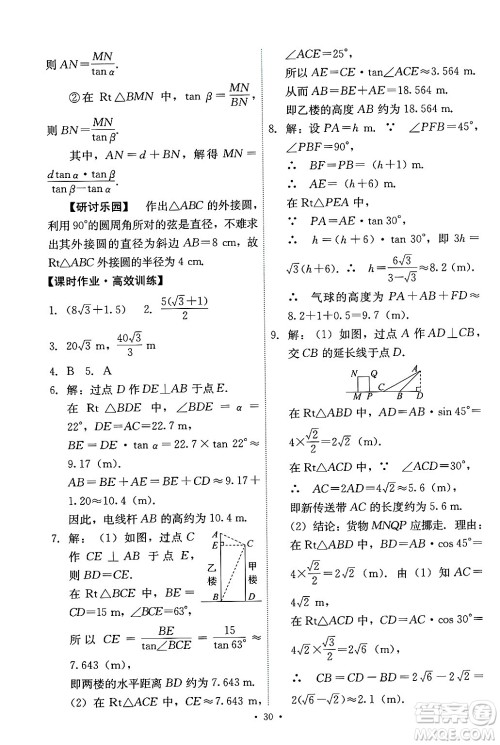 则 AN=MN/tan α.
②在 Rt△BMN 中, tan β=MN/BN
则 BN=MN/tan β.
其中, AN=d+BN, 解得 MN=
d tan α·tan β/tan β-tan α.
【研讨乐园】 作出△ABC 的外接圆,
利用 90°的圆周角所对的弦是直径,不难求
出其外接圆的直径为 AB=8 cm, 故
Rt△ABC 外接圆的半径为 4 cm.
【课时作业·高效训练】
1. (8√3+1.5) 2. 5(√3+1)/2
3. 20√3 m, 40√3/3 m
4. B 5. A
6. 解:过点 D 作 DE⊥AB 于点 E.
在 Rt △BDE 中, ∠BDE = α =
22°, DE=AC=22.7 m,
BE = DE·tan α = 22.7 × tan 22° ≈
9.17 (m).
AB = BE + AE = BE + CD = 9.17 +
1.20≈10.4 (m).
因此, 电线杆 AB 的高约为 10.4 m.
7. 解:(1) 如图, 过点 C
作 CE ⊥ AB 于点
E, 则 BD=CE.
在 Rt △ BCE 中,
BE = CD = 15 m,
∠BCE=63°,
所以 CE = BE/tan∠BCE = 15/tan 63° ≈
7.643 (m).
即两楼的水平距离为 7.643 m.
(2) 在 Rt△ACE 中, CE=7.643 m,
∠ACE=25°,
所以 AE=CE·tan∠ACE≈3.564 m.
从而 AB=AE+BE≈18.564 m.
即乙楼的高度 AB 约为 18.564 m.
8. 解:设 PA=h m. ∵ ∠PFB=45°,
∠FBP=90°,
∴ PB=BF=(h+1) m.
∴ EA=(h+6) m.
在 Rt△PEA 中,
PA=AE·tan 30°,
∴ h = (h + 6) tan 30°, 即 3h =
√3(h+6). ∴ h=6√3/3-√3≈8.2 (m).
∴ 气球的高度为 PA + AB + FD =
8.2+1+0.5=9.7 (m).
9. 解:(1) 如图, 过点 A 作 AD⊥CB,
交 CB 的延长线于点 D.
A
E
C
乙
楼
甲
楼
B
D
N Q A
M P C B D
在 Rt△ABD 中, AD=AB·sin 45°=
4×√2/2=2√2 (m).
在 Rt△ACD 中, ∵ ∠ACD=30°,
∴ AC=2AD=4√2≈5.6 (m).
即新传送带 AC 的长度约为 5.6 m.
(2) 结论:货物 MNQP 应挪走.
∵ 在 Rt△ABD 中, BD=AB·cos 45°=
4×√2/2=2√2 (m). ∵ 由 (1) 可知 AC=
4√2 m,
∴ 在 Rt△ACD 中, CD=AC·cos 30°=
4√2×√3/2=2√6 (m).
∴ CB=CD-BD=2√6-2√2=
2(√6-√2)≈2.1 (m).
· 30 ·
答案圈
MXQE.COM